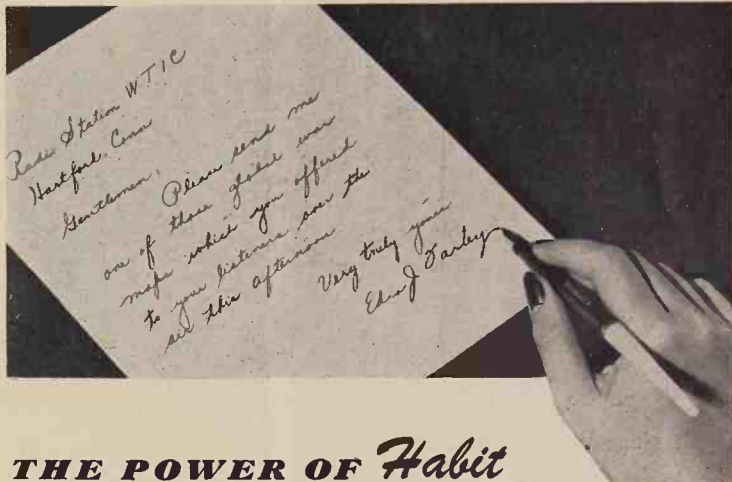 Radio Station WTIC
Hartford, Conn
Gentlemen,
Please send me
one of those global war
maps which you offered
to your listeners over the
air this afternoon
Very truly yours
J Farley
THE POWER OF Habit